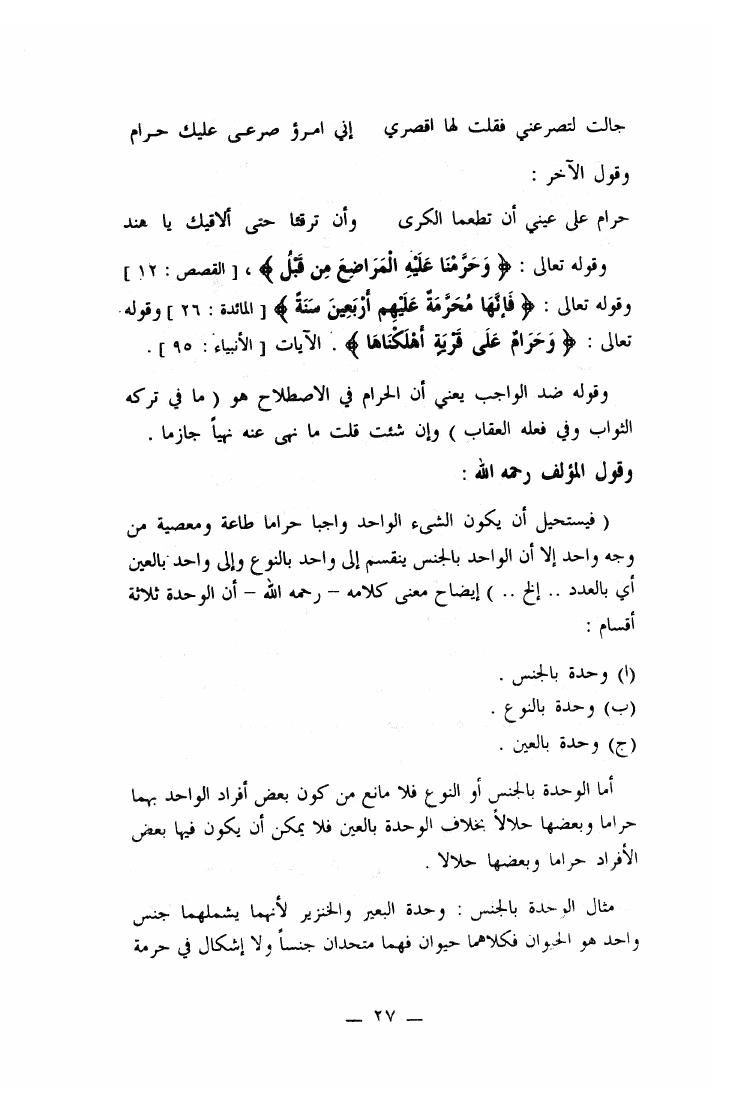 جالت لتصرعني فقلت لها اقصري    إني امـرؤ صرعـى عليك حـرام
وقول الآخر :
حرام على عيني أن تطعما الكرى    وأن ترقئا حتى ألاقيك يا هند
وقوله تعالى : ﴿ وَحَرَّمْنَا عَلَيْهِ الْمَرَاضِعَ مِن قَبْلُ ﴾ ، [ القصص : ١٢ ]
وقوله تعالى : ﴿ فَإِنَّهَا مُحَرَّمَةٌ عَلَيْهِم أَرْبَعِينَ سَنَةً ﴾ [ المائدة : ٢٦ ] وقوله
تعالى : ﴿ وَحَرَامٌ عَلَى قَرْيَةٍ أَهْلَكْنَاهَا ﴾ . الآيات [ الأنبياء : ٩٥ ] .
وقوله ضد الواجب يعني أن الحرام في الاصطلاح هو ( ما في تركه
الثواب وفي فعله العقاب ) وإن شئت قلت ما نهى عنه نهياً جازما .
وقول المؤلف رحمه الله :
( فيستحيل أن يكون الشىء الواحد واجبا حراما طاعة ومعصية من
وجه واحد إلا أن الواحد بالجنس ينقسم إلى واحد بالنوع وإلى واحد بالعين
أي بالعدد .. إلخ .. ) إيضاح معنى كلامه – رحمه الله – أن الوحدة ثلاثة
أقسام :
(ا) وحدة بالجنس .
(ب) وحدة بالنوع .
(ج) وحدة بالعين .
أما الوحدة بالجنس أو النوع فلا مانع من كون بعض أفراد الواحد بهما
حراما وبعضها حلالاً بخلاف الوحدة بالعين فلا يمكن أن يكون فيها بعض
الأفراد حراما وبعضها حلالا .
مثال الوحدة بالجنس : وحدة البعير والخنزير لأنهما يشملهما جنس
واحد هو الحيوان فكلاهما حيوان فهما متحدان جنساً ولا إشكال في حرمة
— ٢٧ —